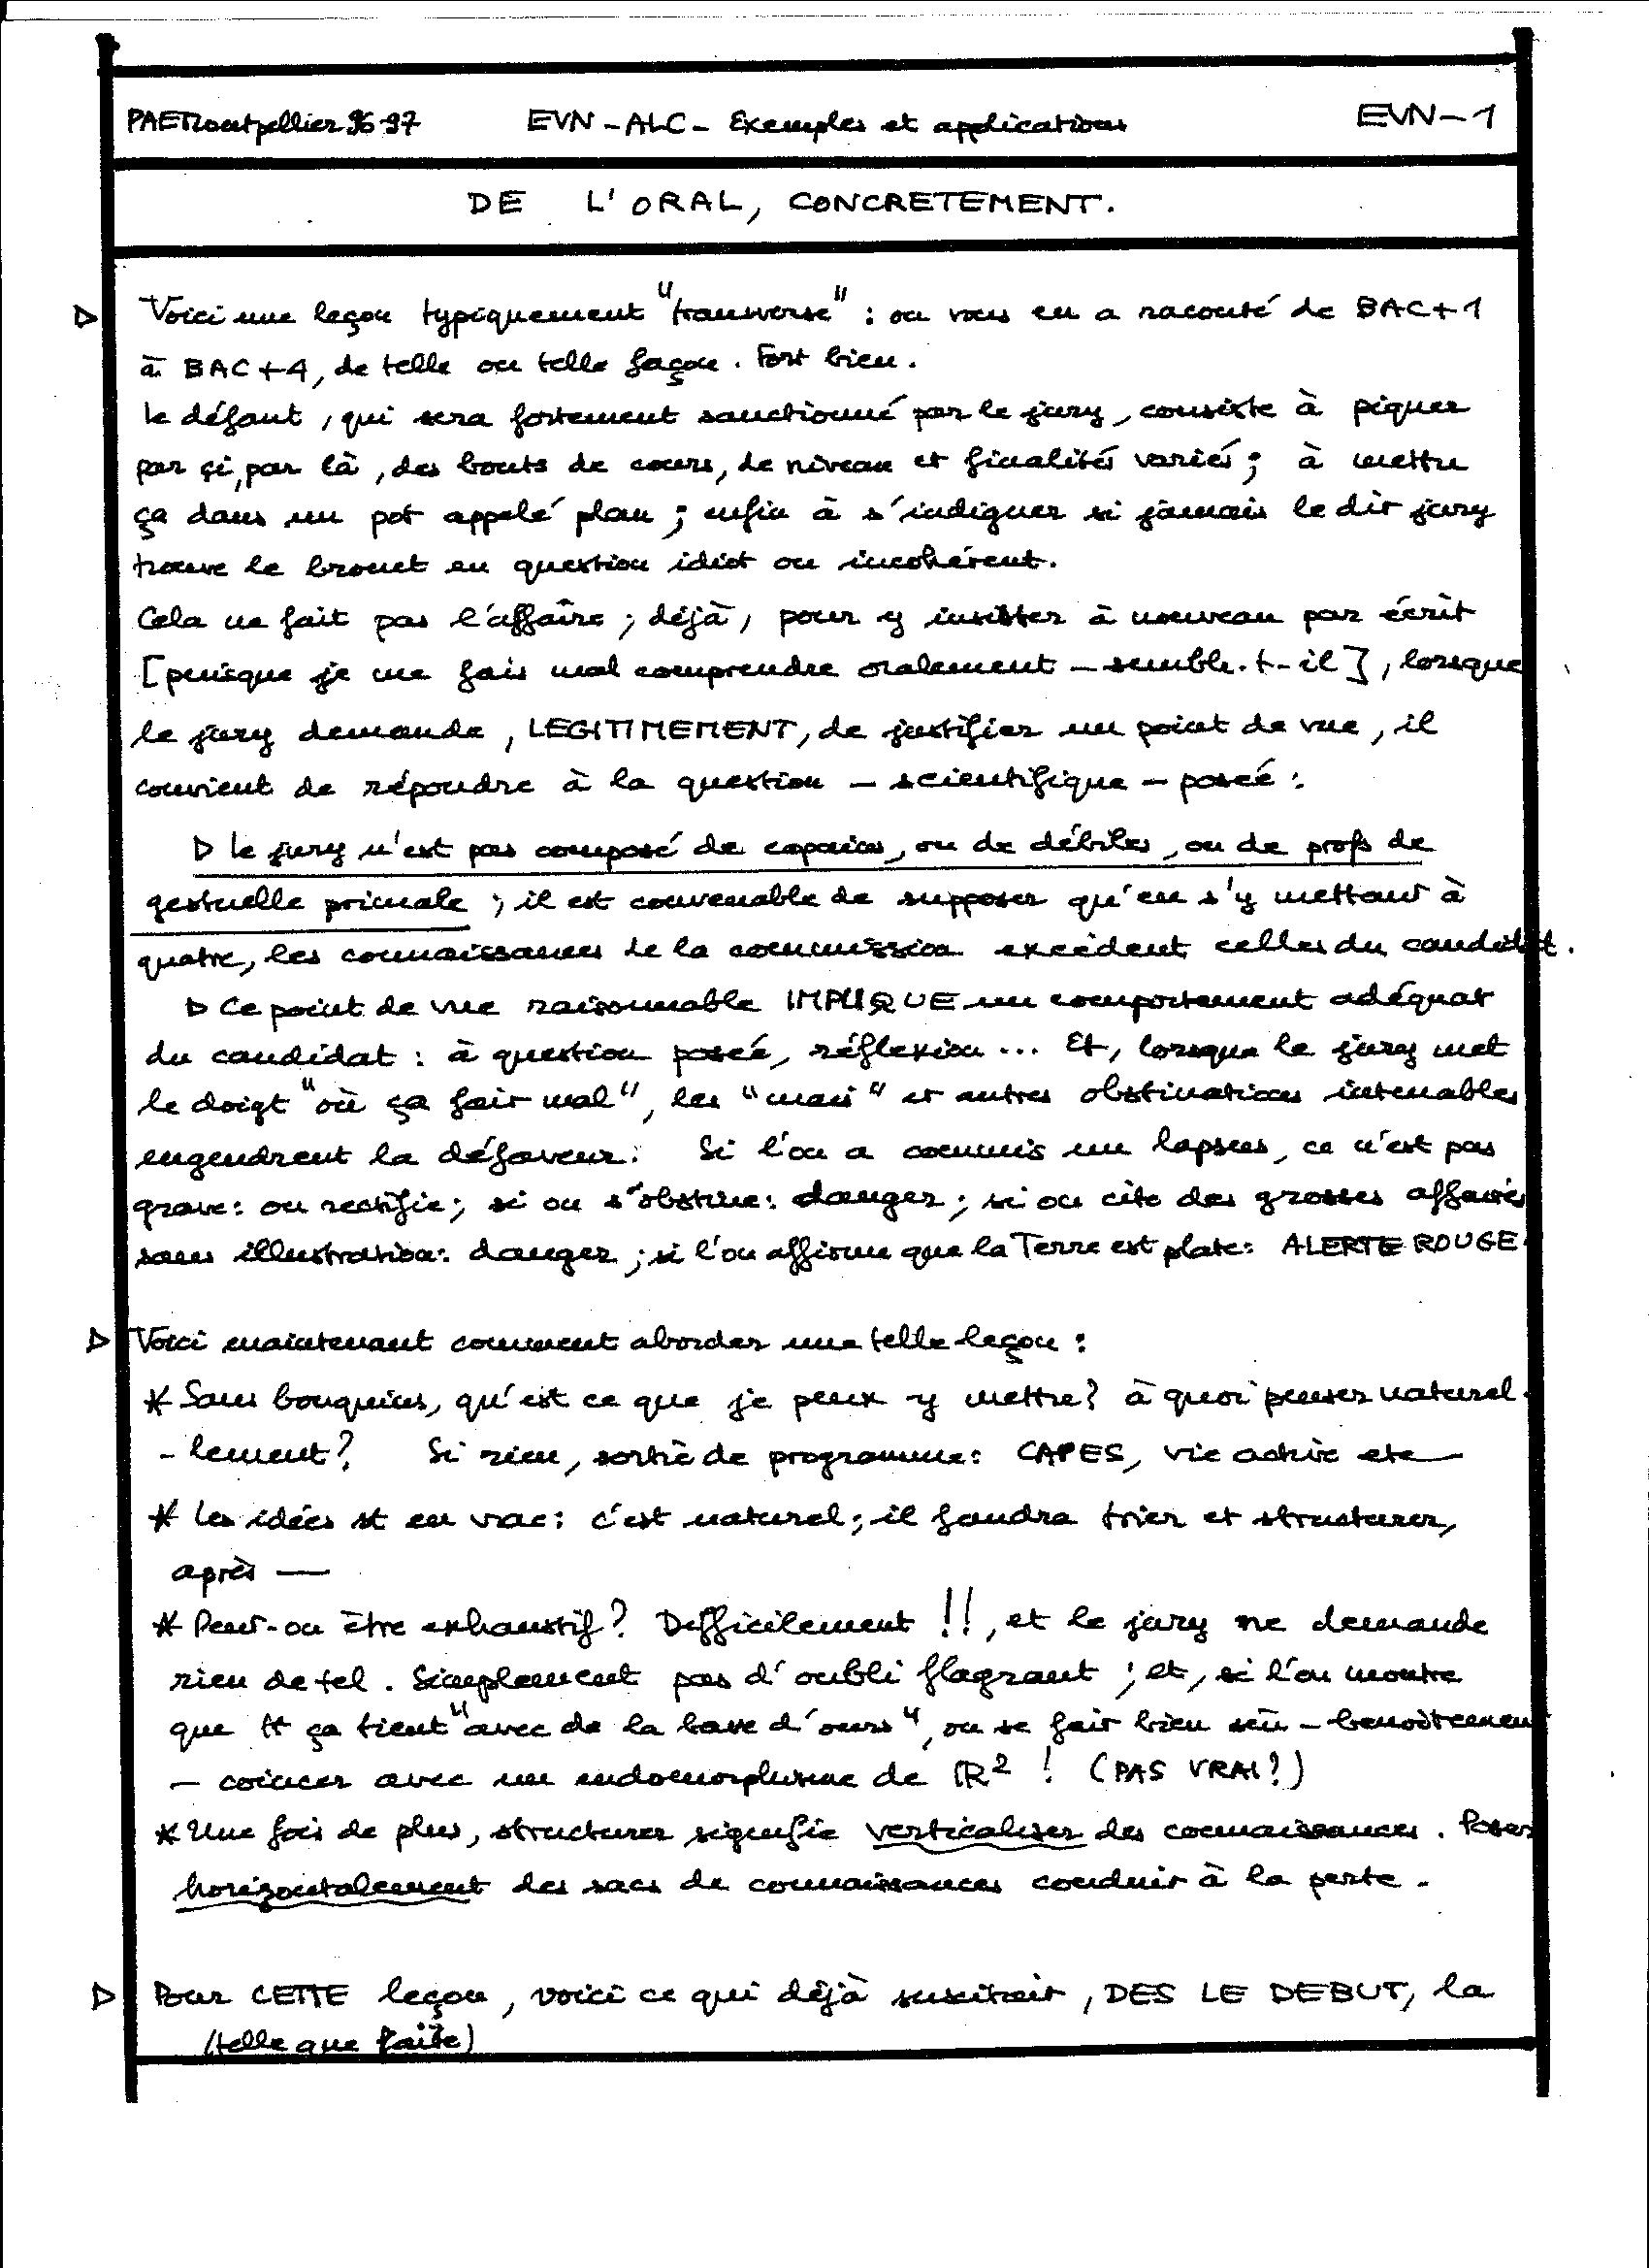 PAEMontpellier 96-97 EVN-ALC- Exemples et applications EVN-1
DE L'ORAL, CONCRETEMENT.
▷ Voici une leçon typiquement "transverse" : on vous en a raconté de BAC+1
à BAC+4, de telle ou telle façon. Fort bien.
Le défaut, qui sera fortement sanctionné par le jury, consiste à piquer
par çi, par là, des bouts de cours, de niveau et finalités variés; à mettre
ça dans un pot appelé plan; enfin à s'indigner si jamais le dit jury
trouve le brouet en question idiot ou incohérent.
Cela ne fait pas l'affaire; déjà, pour y insister à nouveau par écrit
[puisque je me fais mal comprendre oralement - semble-t-il], lorsque
le jury demande, LEGITIMEMENT, de justifier un point de vue, il
convient de répondre à la question - scientifique - posée :
▷ Le jury n'est pas composé de copains, ou de débiles, ou de profs de
gestuelle primale ; il est convenable de supposer qu'en s'y mettant à
quatre, les connaissances de la commission excèdent celles du candidat.
▷ Ce point de vue raisonnable IMPLIQUE un comportement adéquat
du candidat : à question posée, réflexion... Et, lorsque le jury met
le doigt "où ça fait mal", les "mais" et autres obstinations intenables
engendrent la défaveur. Si l'on a commis un lapsus, ce n'est pas
grave : on rectifie; si on s'obstine : danger; si on cite des grosses affaires
sans illustration : danger; si l'on affirme que la Terre est plate : ALERTE ROUGE.
▷ Voici maintenant comment aborder une telle leçon :
* Sans bouquins, qu'est ce que je peux y mettre? à quoi penser naturel-
-lement? Si rien, sortie de programme : CAPES, vie active etc
* Les idées st en vrac : c'est naturel; il faudra trier et structurer,
après —
* Peut-on être exhaustif? Difficilement !!, et le jury ne demande
rien de tel. Simplement pas d'oubli flagrant; et, si l'on montre
que tt ça tient "avec de la bave d'ours", on se fait bien sûr - benoîtement
- coincer avec un endomorphisme de ℝ² ! (PAS VRAI?)
* Une fois de plus, structurer signifie verticaliser des connaissances. Poser
horizontalement des sacs de connaissances conduit à la perte.
▷ Pour CETTE leçon, voici ce qui déjà susciterait, DES LE DEBUT, la
(telle que faite)